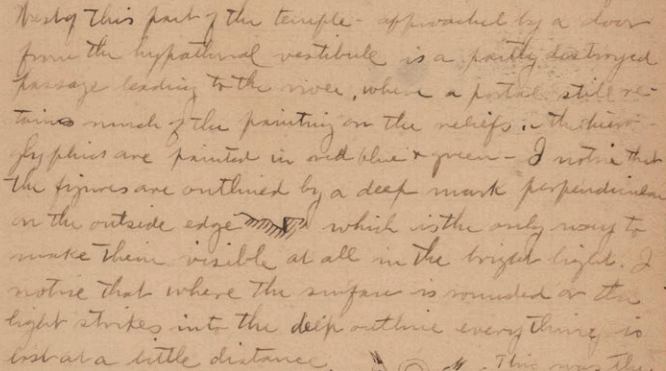 West of this part of the temple - approached by a door
from the hypathral vestibule is a partly destroyed
passage leading to the river, where a portal still re-
tains much of the painting on the reliefs. The hiero-
glyphics are painted in red blue + green - I notice that
the figures are outlined by a deep mark perpendicular
on the outside edge which is the only way to
make them visible at all in the bright light. I
notice that where the surface is rounded or the
light strikes into the deep outline everything is
lost at a little distance. This was the